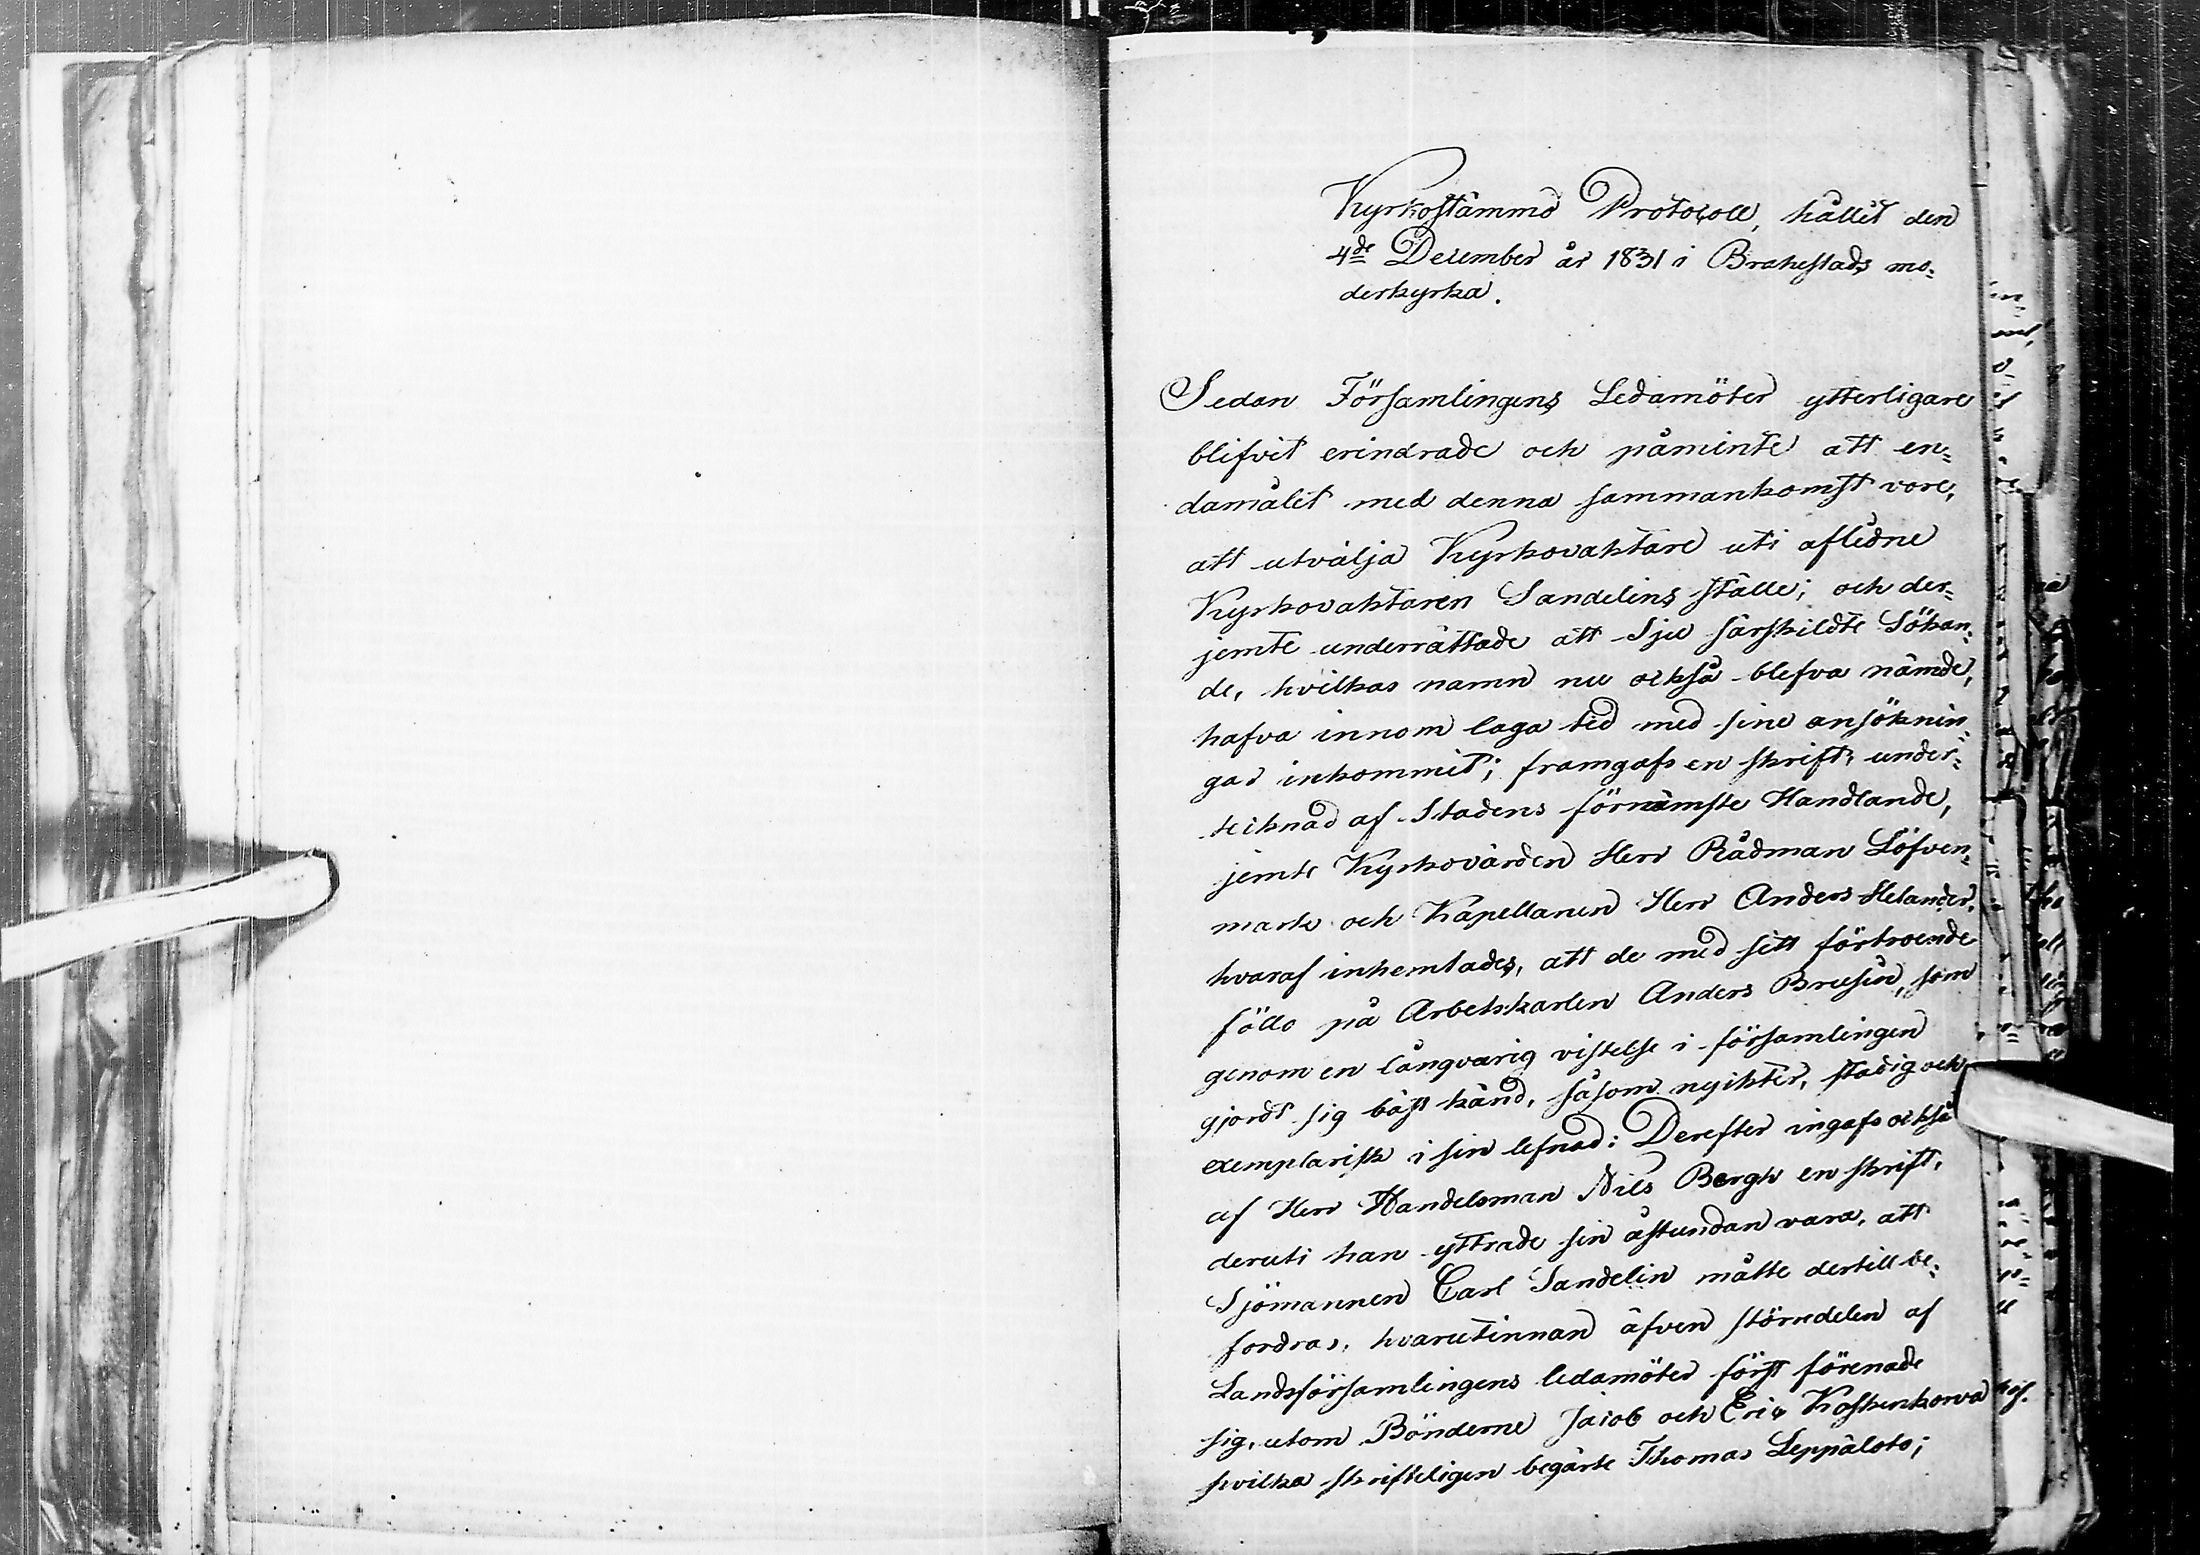 Kyrkostämmo Protocoll, hållit den
4de December år 1831 i Brahestads mo=
derkyrka.
Sedan Församlingens Ledamöter ytterligare
blifvit erindrade och påminte att en=
damålet med denna sammankomst vore,
att utvälja Kyrkovaktare uti afledne
Kyrkovaktaren Sandelins ställe; och der=
jemte underrättade att Sju särskildte Sökan=
de, hvilkas namn nu också blefva nämde,
hafva innom laga tid med sine ansöknin=
gar inkommit; framgafs en skrift, under=
tecknad af Stadens förnämste Handlande,
jemte Kyrkovärden Herr Rådman Löfven=
mark och Kapellanen Herr Anders Helander,
hvaraf inhemtades, att de med sitt förtroende
föllo på Arbetskarlen Anders Brusin, som
genom en långvarig vistelse i församlingen
gjordt sig bäst känd, såsom nyikter, stadig och
exemplarisk i sin lefnad: Derefter ingafs också
af Herr Handelsman Nils Bergh en skrift,
deruti han yttrade sin åstundan vara, att
Sjömannen Carl Sandelin måtte dertill be=
fordras, hvarutinnan äfven störredelen af
Landsförsamlingens ledamöter först förenade
sig, utom Bönderne Jacob och Eric Koskenkorva
hvilka skrifteligen begärte Thomas Leppäloto;